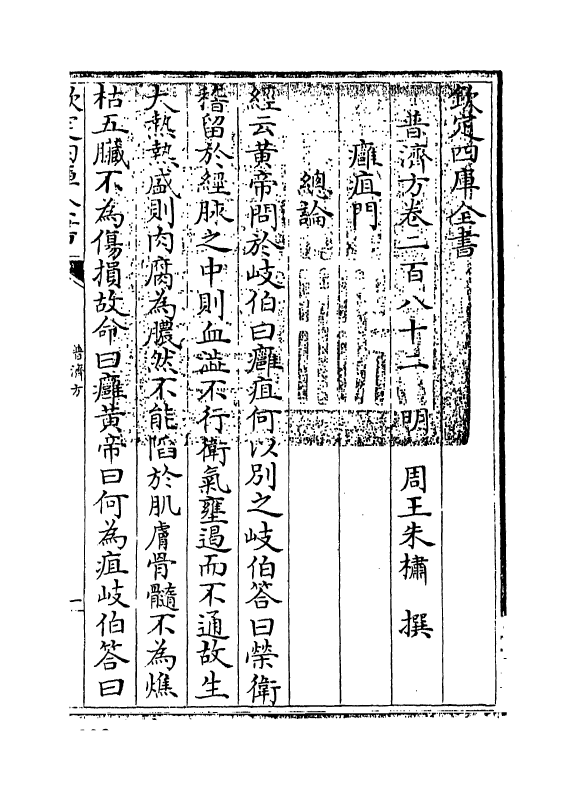 欽定四庫全書
普濟方卷二百八十二 明 周王朱橚 撰
癰疽門
總論
經云黃帝問於岐伯曰癰疽何以別之岐伯答曰榮衛
稽留於經脉之中則血澁不行衛氣壅遏而不通故生
大熱熱盛則肉腐為膿然不能陷於肌膚骨髓不為燋
枯五臟不為傷損故命曰癰黃帝曰何為疽岐伯答曰
欽定四庫全書
普濟方
一